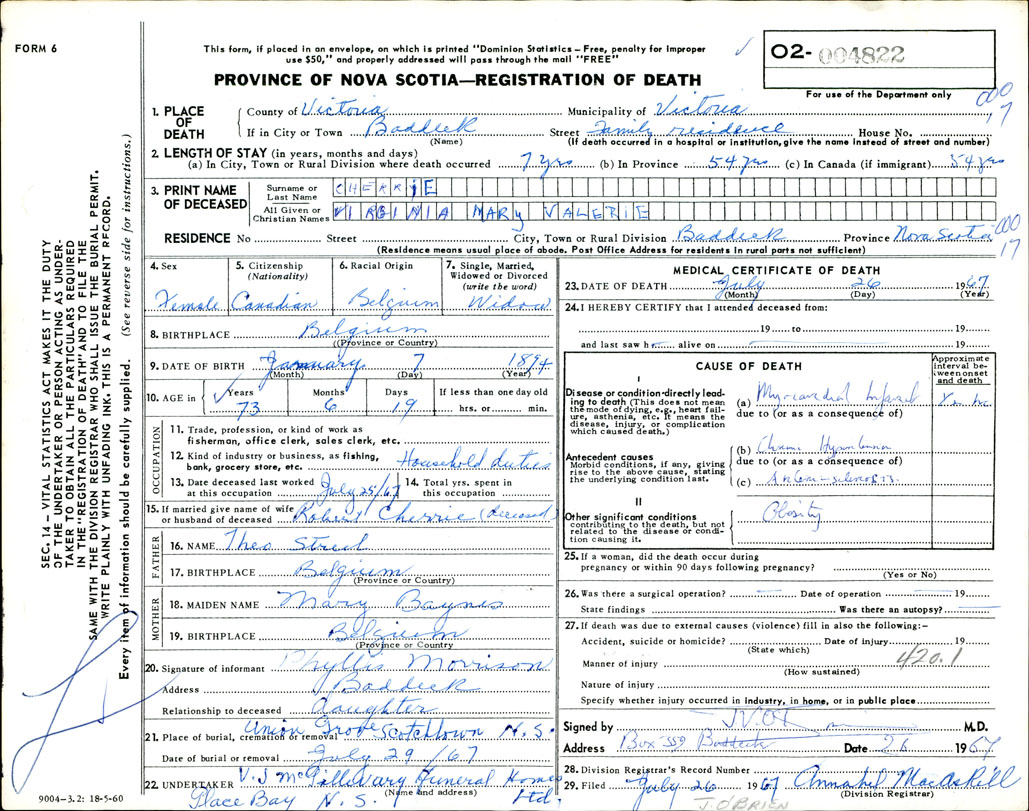 FORM 6
This form, if placed in an envelope, on which is printed "Dominion Statistics – Free, penalty for improper
use $50," and properly addressed will pass through the mail "FREE"
PROVINCE OF NOVA SCOTIA—REGISTRATION OF DEATH
02- 004822
For use of the Department only
SEC. 14 – VITAL STATISTICS ACT MAKES IT THE DUTY
OF THE UNDERTAKER OR PERSON ACTING AS UNDER-
TAKER TO OBTAIN ALL THE PARTICULARS REQUIRED
IN THE "REGISTRATION OF DEATH" AND TO FILE THE
SAME WITH THE DIVISION REGISTRAR WHO SHALL ISSUE THE BURIAL PERMIT.
WRITE PLAINLY WITH UNFADING INK. THIS IS A PERMANENT RECORD.
Every item of information should be carefully supplied. (See reverse side for instructions.)
1. PLACE OF DEATH County of Victoria Municipality of Victoria
If in City or Town Baddeck Street Family residence House No.
(Name) (If death occurred in a hospital or institution, give the name instead of street and number)
2. LENGTH OF STAY (in years, months and days)
(a) In City, Town or Rural Division where death occurred 7 yrs (b) In Province 54 yrs (c) In Canada (if immigrant) 54 yrs
3. PRINT NAME OF DECEASED Surname or Last Name CHERRIE
All Given or Christian Names VIRGINIA MARY VALERIE
RESIDENCE No Street City, Town or Rural Division Baddeck Province Nova Scotia
(Residence means usual place of abode. Post Office Address for residents in rural parts not sufficient)
4. Sex 5. Citizenship (Nationality) 6. Racial Origin 7. Single, Married, Widowed or Divorced (write the word)
Female Canadian Belgium Widow
8. BIRTHPLACE Belgium
(Province or Country)
9. DATE OF BIRTH January 7 1894
(Month) (Day) (Year)
10. AGE in Years Months Days If less than one day old
73 6 19 hrs. or min.
OCCUPATION
11. Trade, profession, or kind of work as
fisherman, office clerk, sales clerk, etc.
12. Kind of industry or business, as fishing,
bank, grocery store, etc. Household duties
13. Date deceased last worked at this occupation July 25/67 14. Total yrs. spent in this occupation
15. If married give name of wife or husband of deceased Robert Cherrie (deceased)
FATHER
16. NAME Theo
17. BIRTHPLACE Belgium
(Province or Country)
MOTHER
18. MAIDEN NAME Mary Baynis
19. BIRTHPLACE Belgium
(Province or Country)
20. Signature of informant Phyllis Morrison
Address Baddeck
Relationship to deceased daughter
21. Place of burial, cremation or removal Union Grove Scotchtown N.S.
Date of burial or removal July 29/67
22. UNDERTAKER V.J McGillivary Funeral Home Ltd.
(Name and address)
Glace Bay N.S.
9004-3.2: 18-5-60
MEDICAL CERTIFICATE OF DEATH
23. DATE OF DEATH July 26 1967
(Month) (Day) (Year)
24. I HEREBY CERTIFY that I attended deceased from:
19 to 19
and last saw h alive on 19
CAUSE OF DEATH
Approximate interval between onset and death
I
Disease or condition directly leading to death (This does not mean the mode of dying, e.g., heart failure, asthenia, etc. It means the disease, injury, or complication which caused death.)
(a) Myocardial Infarct
due to (or as a consequence of)
Antecedent causes
Morbid conditions, if any, giving rise to the above cause, stating the underlying condition last.
(b)
due to (or as a consequence of)
(c)
II
Other significant conditions
contributing to the death, but not related to the disease or condition causing it.
Obesity
25. If a woman, did the death occur during
pregnancy or within 90 days following pregnancy?
(Yes or No)
26. Was there a surgical operation? Date of operation 19
State findings Was there an autopsy?
27. If death was due to external causes (violence) fill in also the following:–
Accident, suicide or homicide? Date of injury 19
(State which)
420.1
Manner of injury
(How sustained)
Nature of injury
Specify whether injury occurred in industry, in home, or in public place
Signed by M.D.
Address Box 359 Baddeck Date 26 1967
28. Division Registrar's Record Number
29. Filed July 26 1967 Annabel MacAskill
(Division Registrar)
J. O'BRIEN